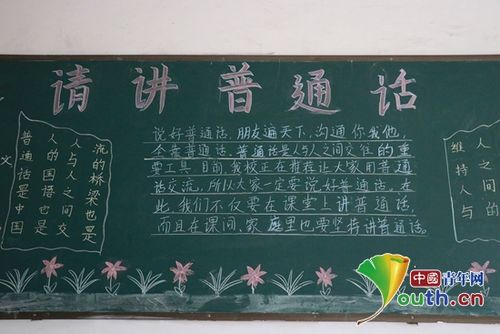 请讲普通话
文
普通话是中国
人的国语也是
人与人之间交
流的桥梁也是
说好普通话,朋友遍天下,沟通你我他,
全靠普通话。普通话是人与人之间交往的重
要工具。目前,我校正在推荐让大家用普通
话交流,所以大家一定要说好普通话。在
此,我们不仅要在课堂上讲普通话,
而且在课间、家庭里也要坚持讲普通话。
在人之间
维持人与
中国青年网
Youth.cn